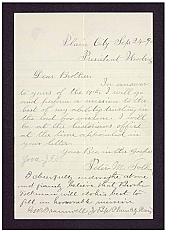 Plain City Sep 24 9
President Woodru
Dear Brother.
In answer
to yours of the 19th I will go
and perform a mission to the
best of my ability trusting in
the Lord for wisdom. I will
be at the historians office
at the time appointed in
your letter.
Your Bro in the Gospel
Peter M. Folk
I cheerfully indorse the above
and
will do his best to
fill an honorable mission
Geo W Bramwell Jr Bp Plain City